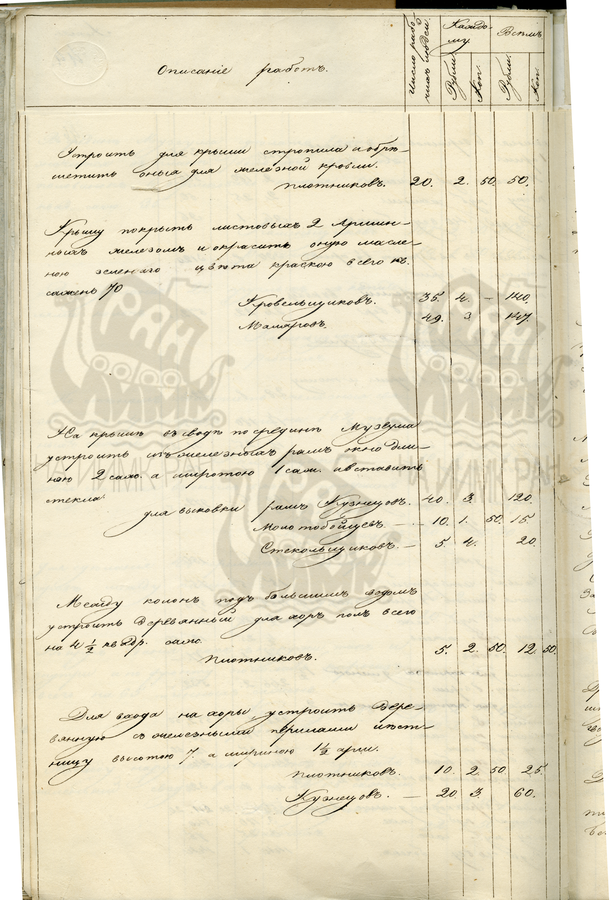 Описаніе работъ.
Число рабо-
чихъ людей.
Каждо-
му.
Всѣмъ
Рубли.
Коп.
Рубли.
Коп.
Устроить для крыши стропила и обрѣ-
шетить оныя для железной кровли.
Плотниковъ. 20. 2. 50. 50.
Крышу покрыть листовымъ 2 Аршин-
нымъ железомъ и окрасить оную масле-
ною зеленаго цвѣта краскою всего кв.
сажень 70
Кровельщиковъ. 35. 4. — 140.
Маляровъ. 49. 3. 147.
На крышѣ въ сводѣ по срединѣ Музеума
устроить въ железныхъ рамъ окно дли-
ною 2 саж. а широтою 1 саж. и вставить
стекла
для выковки рамъ Кузнецовъ. 40. 3. 120.
Молотобойцевъ. — 10. 1. 50. 15.
Стекольщиковъ. — 5. 4. 20.
Между колонъ подъ большимъ сводомъ
устроить деревянный для хоръ полъ всего
на 4 ½ квадр. саж.
Плотниковъ. 5. 2. 50. 12. 50.
Для входа на хоры устроить дере-
вянную съ железными перилами лѣст-
ницу высотою 7. а шириною 1½ арш.
Плотниковъ. 10. 2. 50 25.
Кузнецовъ. — 20. 3. 60.
РАН
ИИМК
НА ИИМК РАН